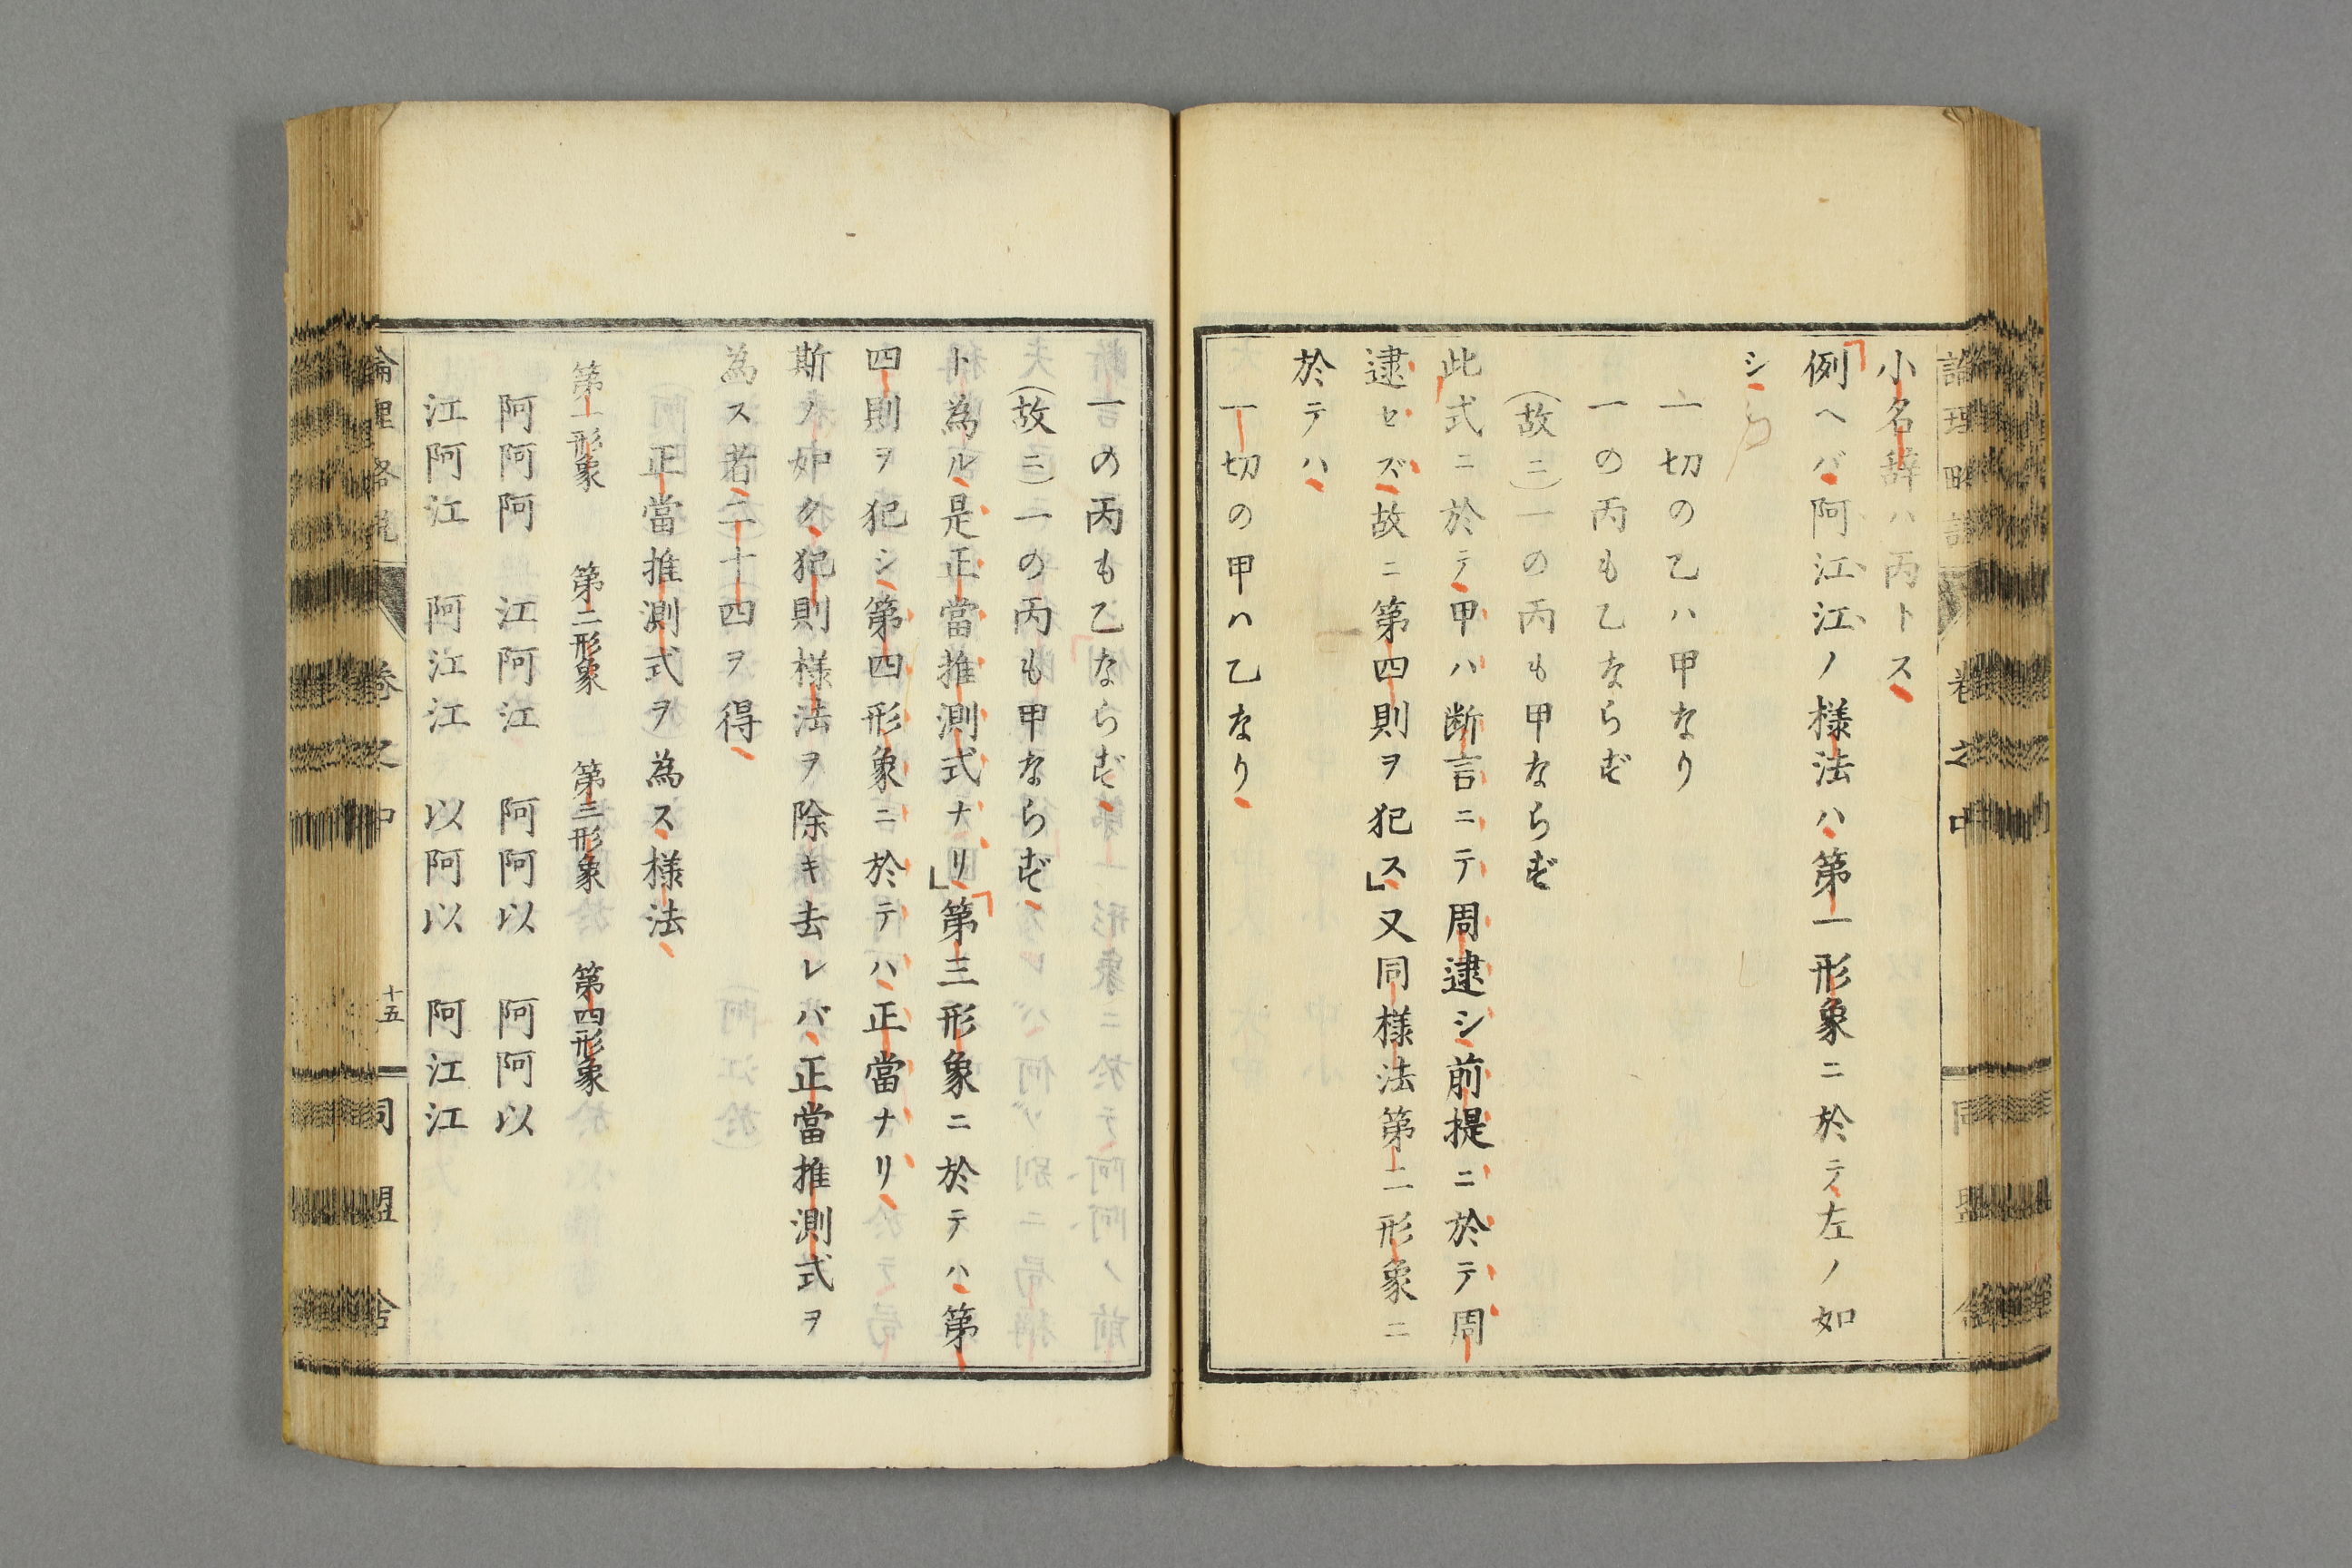 小名辞ハ丙トス
例ヘバ阿江江ノ様法ハ第一形象ニ於テ左ノ如
シ
一切の乙ハ甲なり
一の丙も乙ならず
(故ニ)一の丙も甲ならず
此式ニ於テ甲ハ断言ニテ周逮シ前提ニ於テ周
逮セズ故ニ第四則ヲ犯ス」又同様法第二形象ニ
於テハ
一切の甲ハ乙なり
一の丙も乙ならず
(故ニ)一の丙も甲ならず
ト為ル是正當推測式ナリ」第三形象ニ於テハ第
四則ヲ犯シ第四形象ニ於テハ正當ナリ
斯ノ如ク犯則様法ヲ除キ去レバ正當推測式ヲ
為ス者二十四ヲ得
正當推測式ヲ為ス様法
第一形象 第二形象 第三形象 第四形象
阿阿阿 江阿江 阿阿以 阿阿以
江阿江 阿江江 以阿以 阿江江
論理略説 卷之中 十五 同盟舎